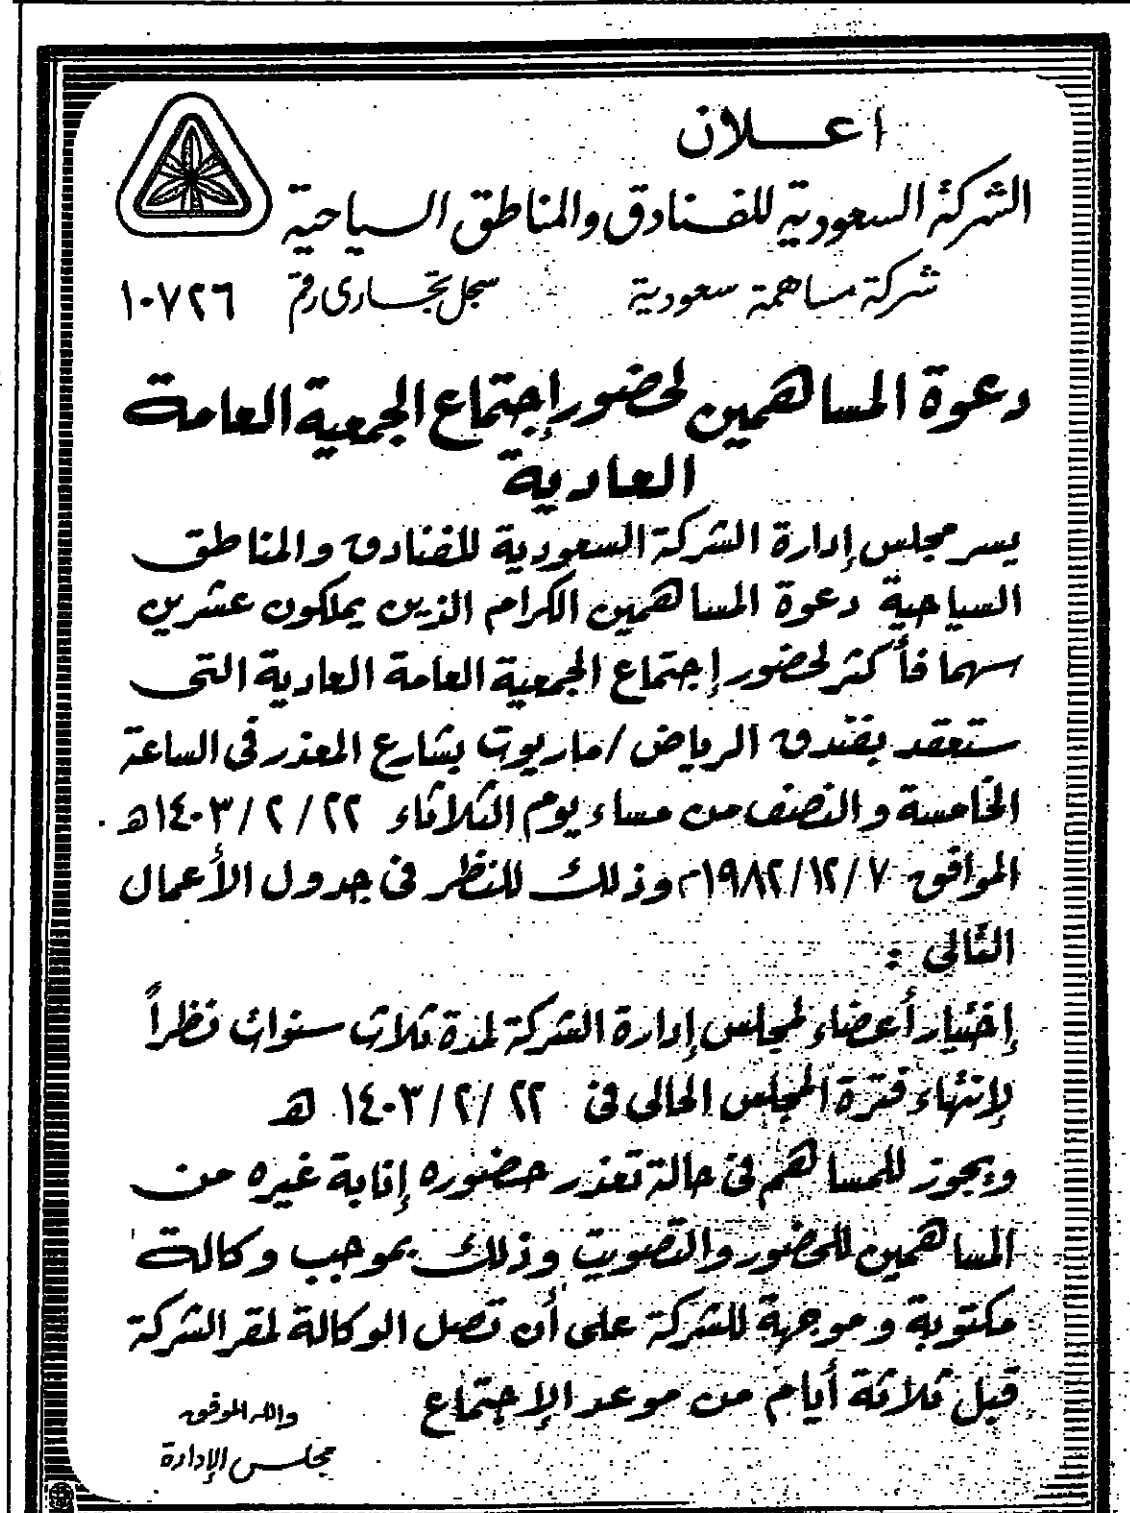 اعـــلان
الشركة السعودية للفنادق والمناطق السياحية
شركة مساهمة سعودية سجل تجاري رقم ١٠٧٢٦
دعوة المساهمين لحضور إجتماع الجمعية العامة
العادية
يسر مجلس إدارة الشركة السعودية للفنادق والمناطق
السياحية دعوة المساهمين الكرام الذين يملكون عشرين
سهما فأكثر لحضور إجتماع الجمعية العامة العادية التى
ستعقد بفندق الرياض / ماريوت بشارع المعذر فى الساعة
الخامسة والنصف من مساء يوم الثلاثاء ٢٢ / ٢ / ١٤٠٣هـ
الموافق ٧ / ١٢ / ١٩٨٢م وذلك للنظر فى جدول الأعمال
التالى :
إختيار أعضاء لمجلس إدارة الشركة لمدة ثلاث سنوات نظراً
لإنتهاء فترة المجلس الحالى فى ٢٢ / ٢ / ١٤٠٣ هـ
ويجوز للمساهم فى حالة تعذر حضوره إنابة غيره من
المساهمين للحضور والتصويت وذلك بموجب وكالة
مكتوبة وموجهة للشركة على أن تصل الوكالة لمقر الشركة
قبل ثلاثة أيام من موعد الإجتماع
والله الموفق
مجلس الإدارة